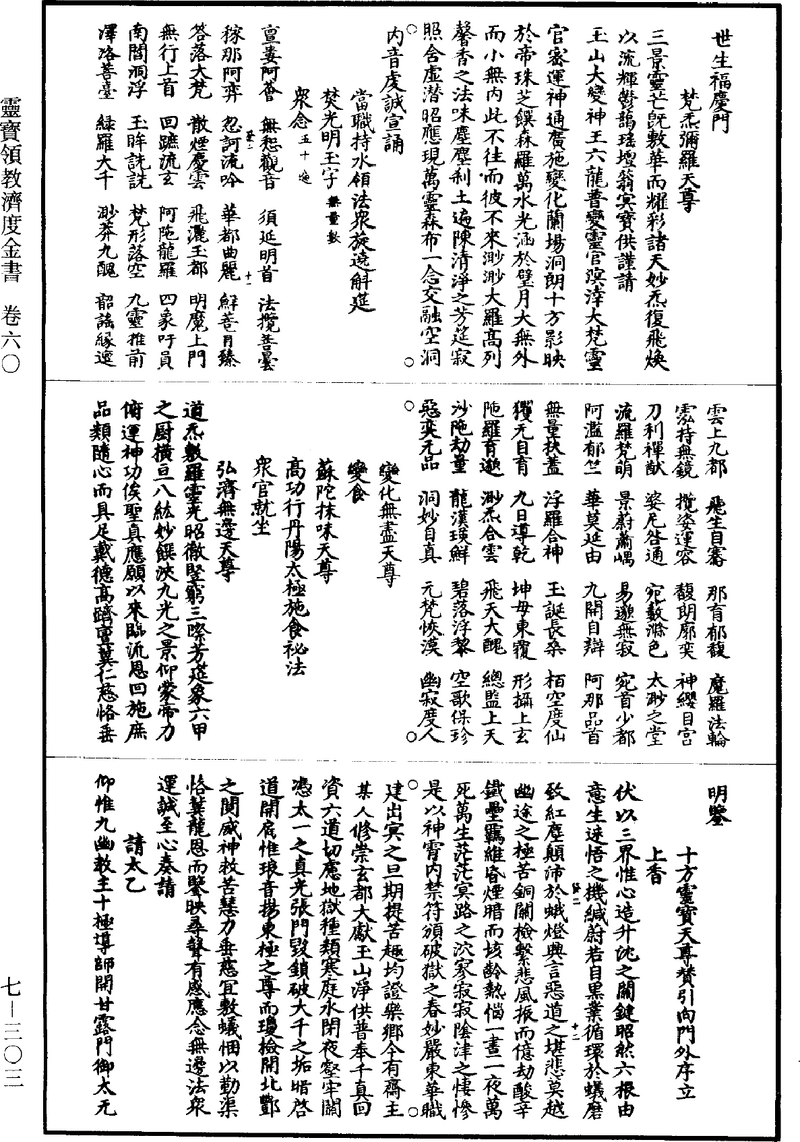 靈寶領教濟度金書 卷六〇
七—三〇三
世生福慶門
梵炁彌羅天尊
三景靈芒旣敷華而耀彩諸天妙炁復飛煥
以流輝鬱藹瑤壇翁冥寶供謹請
玉山大變神王六龍普變靈官溟涬大梵靈
官密運神通廣施變化蘭場洞朗十方影映
於帝珠芝饌森羅萬水光涵於璧月大無外
而小無內此不往而彼不來渺渺大羅高列
馨香之法味塵塵刹土遍陳清淨之芳筵寂
照含虛潛昭應現萬靈森布一念交融空洞
內音虔誠宣誦
當職持水領法眾旋遶斛筵
焚光明玉字無量數
眾念五十遍
亶婁阿薈 無惒觀音 須延明首 法攬菩曇
稼那阿弈 忽訶流吟 華都曲麗 鮮菩育臻
答落大梵 散煙慶雲 飛灑玉都 明魔上門
無行上首 回蹠流玄 阿陁龍羅 四象吁員
南閻洞浮 玉眸詵詵 梵形落空 九靈推前
澤洛菩臺 綠羅大千 渺莽九醜 韶謠緣邅
雲上九都 飛生自騫 那育郁馥 魔羅法輪
霐持無鏡 攬姿運容 馥朗廓奕 神纓自宮
刀利禪猷 婆尼咎通 宛藪滌色 太渺之堂
流羅梵萌 景蔚蕭嵎 易邈無寂 宛首少都
阿濫郁竺 華莫延由 九開自辯 阿那品首
無量扶蓋 浮羅合神 玉誕長桑 栢空度仙
玃无自育 九日導乾 坤母東覆 形攝上玄
陁羅育邈 渺炁合雲 飛天大醜 總監上天
沙陁劫量 龍漢瑛鮮 碧落浮黎 空歌保珍
惡奕无品 洞妙自真 元梵恢漠 幽寂度人
變化無盡天尊
變食
蘇陀抹味天尊
高功行丹陽太極施食祕法
眾官就坐
弘濟無邊天尊
道炁敷羅靈光昭徹豎窮三際芳筵象六甲
之厨橫亘八紘妙饌浹九光之景仰蒙帝力
俯運神功俟聖真應願以來臨流恩回施庶
品類隨心而具足戴德高躋亶冀仁慈恪垂
明鑒
十方靈寶天尊贊引向門外序立
上香
伏以三界惟心造升沈之關鍵昭然六根由
意生迷悟之機緘蔚若自黑業循環於蟻磨
致紅塵顛沛於蛾燈興言惡道之堪悲莫越
幽途之極苦銅關檢繫悲風振而億劫酸辛
鐵壘羈維昏煙暗而垓齡熱惱一晝一夜萬
死萬生茫茫冥路之沉冢寂寂陰津之悽慘
是以神霄內禁符頒破獄之春妙嚴東華職
建出冥之旦期提苦趣均證樂鄉今有齋主
某人修崇玄都大獻玉山淨供普奉千真回
資六道切應地獄種類寒庭水閉夜壑牢關
憑太一之真光張門毀鎖破大千之垢暗啓
道開扃惟琅音揚東極之尊而瓊檢開北酆
之関威神救苦慧力垂慈宜敷蟻悃以勤渠
恪冀龍恩而鑒映尋聲有感應念無邊法眾
運誠至心奏請
請太乙
仰惟九幽教主十極導師開甘露門御太无